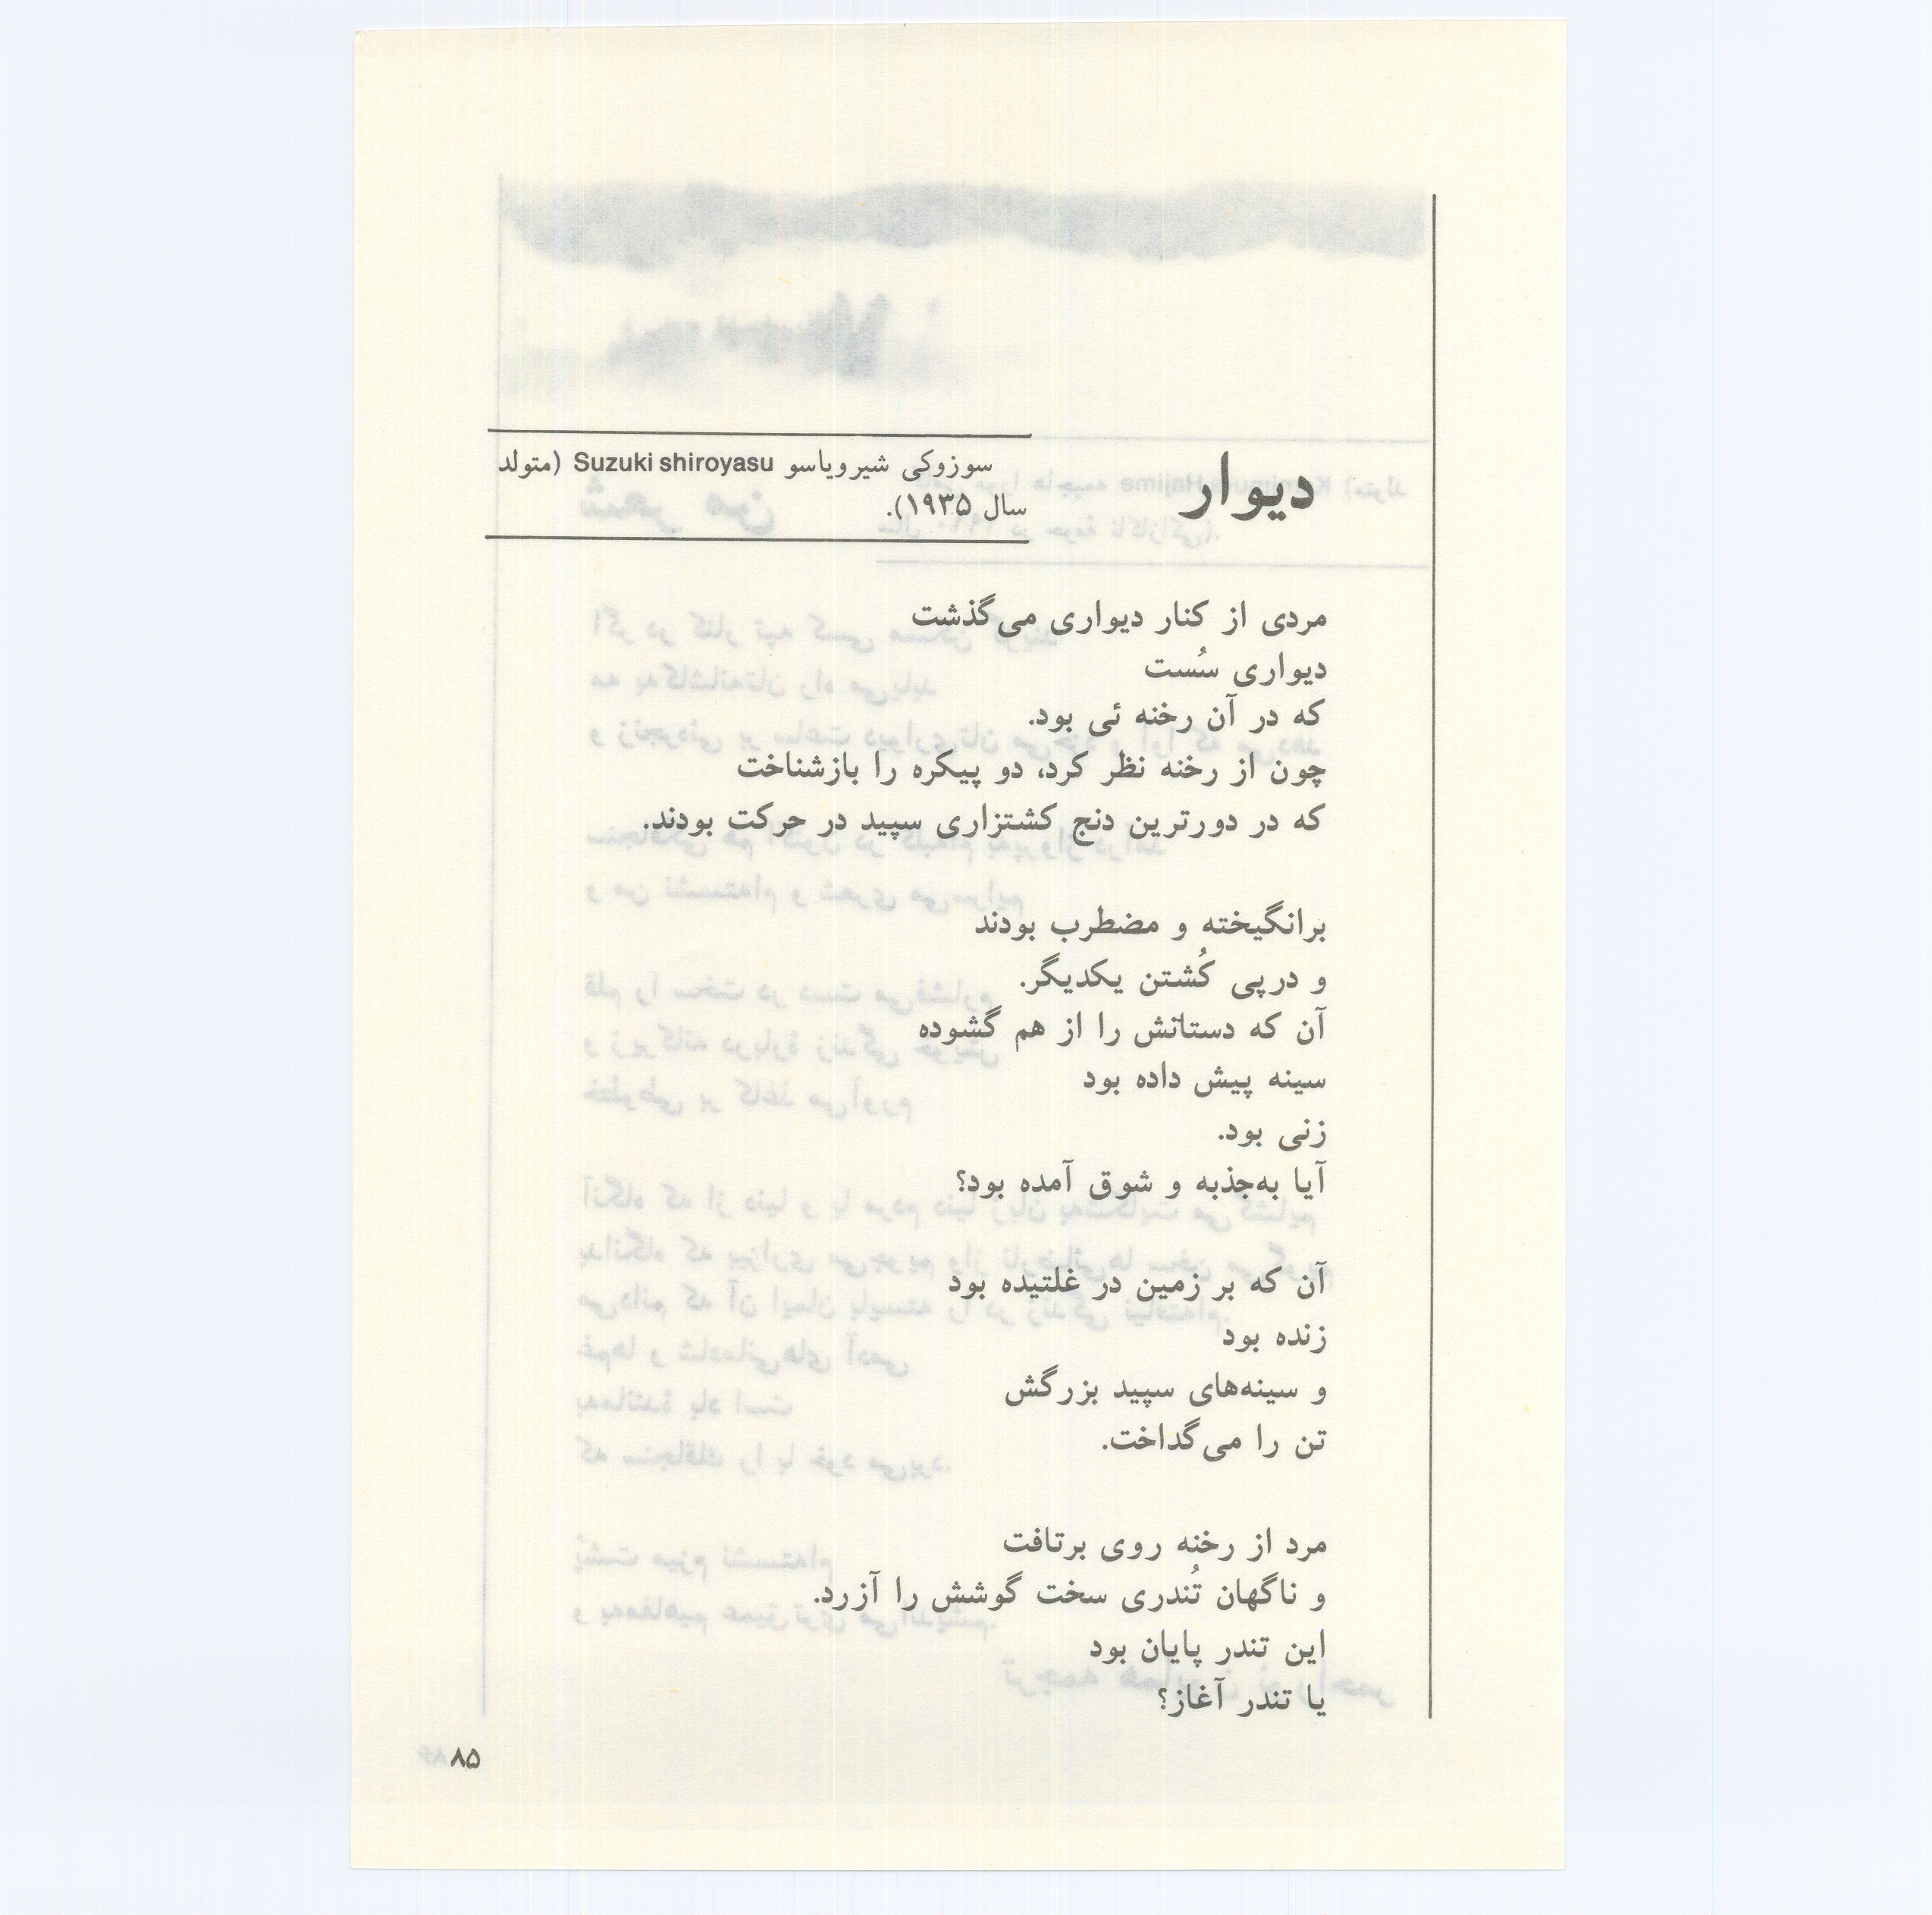 دیوار
سوزوکی شیرویاسو Suzuki shiroyasu (متولد
سال ۱۹۳۵).
مردی از کنار دیواری می‌گذشت
دیواری سُست
که در آن رخنه ئی بود.
چون از رخنه نظر کرد، دو پیکره را بازشناخت
که در دورترین دنج کشتزاری سپید در حرکت بودند.
برانگیخته و مضطرب بودند
و درپی کُشتن یکدیگر.
آن که دستانش را از هم گشوده
سینه پیش داده بود
زنی بود.
آیا به‌جذبه و شوق آمده بود؟
آن که بر زمین در غلتیده بود
زنده بود
و سینه‌های سپید بزرگش
تن را می‌گداخت.
مرد از رخنه روی برتافت
و ناگهان تُندری سخت گوشش را آزرد.
این تندر پایان بود
یا تندر آغاز؟
۸۵